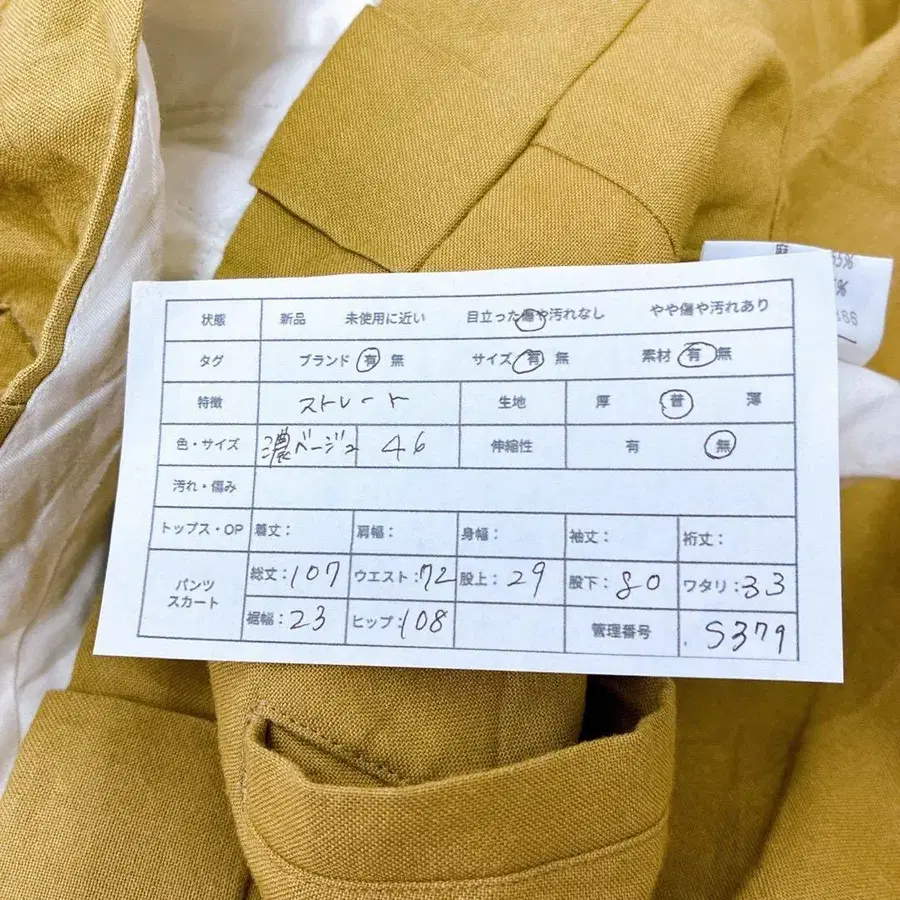 状態 新品 未使用に近い 目立った傷や汚れなし やや傷や汚れあり
タグ ブランド 有 無 サイズ 有 無 素材 有 無
特徴 ストレート 生地 厚 普 薄
色・サイズ 濃ベージュ 46 伸縮性 有 無
汚れ・傷み
トップス・OP 着丈: 肩幅: 身幅: 袖丈: 裄丈:
パンツ スカート 総丈:107 ウエスト:72 股上:29 股下:80 ワタリ:33
裾幅:23 ヒップ:108 管理番号 S379
麻